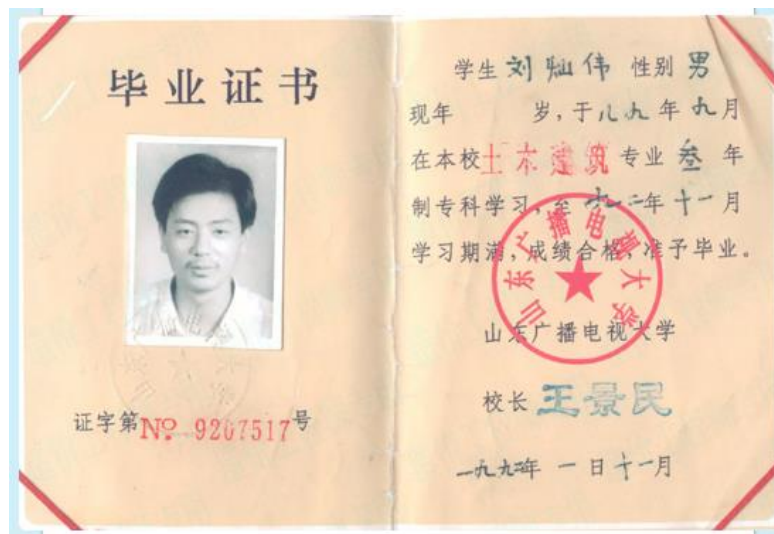 毕业证书
证字第№ 9207517号
学生刘灿伟 性别 男
现年 岁,于八九年九月
在本校土木建筑专业叁年
制专科学习,至九二年十一月
学习期满,成绩合格,准予毕业。
山东广播电视大学
山东广播电视大学
校长 王景民
一九九二年 一日十一月